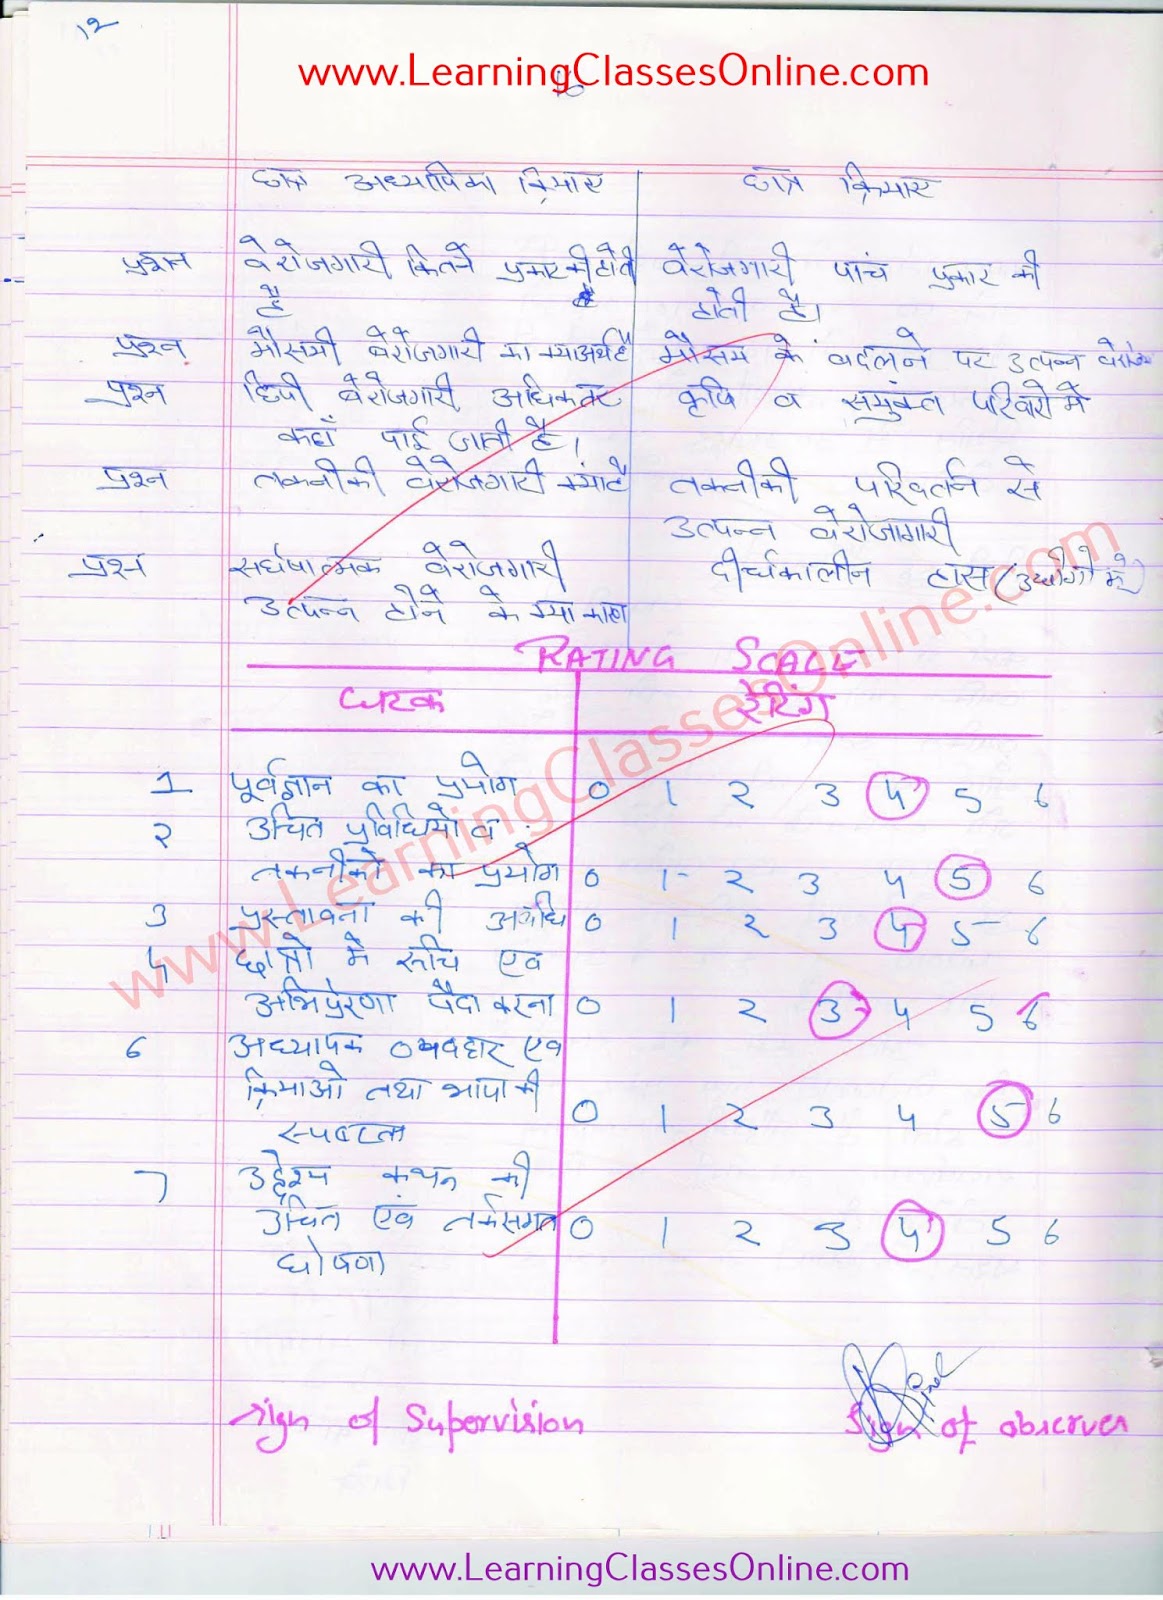 १२
www.LearningClassesOnline.com
छात्र अध्यापिका क्रियाए छात्र क्रियाए
प्रश्न बेरोजगारी कितने प्रकार की होती बेरोजगारी पांच प्रकार की
है होती है।
प्रश्न मौसमी बेरोजगारी का क्या अर्थ है मौसम के बदलने पर उत्पन्न
प्रश्न छिपी बेरोजगारी अधिकतर कृषि व सयुंक्त परिवारो में
कहाँ पाई जाती है।
प्रश्न तकनीकी बेरोजगारी क्या है तकनीकी परिवर्तन से
उत्पन्न बेरोजागारी
प्रश्न सर्घषात्मक बेरोजगारी दीर्घकालीन हास (उद्योगो में)
उत्पन्न होने के क्या
RATING SCALE
घटक रेटिंग
1 पूर्वज्ञान का प्रयोग 0 1 2 3 4 5 6
2 उचित प्रविधियो व
तकनीको का प्रयोग 0 1 2 3 4 5 6
3 प्रस्तावना की अवधि 0 1 2 3 4 5 6
4 छात्रो मे रूचि एव
अभिप्रेरणा पैदा करना 0 1 2 3 4 5 6
6 अध्यापक व्यवहार एव
क्रियाओ तथा भाषा की 0 1 2 3 4 5 6
स्पष्टता
7 उद्देश्य कथन की
उचित एवं तर्कसगत 0 1 2 3 4 5 6
घोषणा
www.LearningClassesOnline.com
Sign of Supervision Sign of observer
www.LearningClassesOnline.com